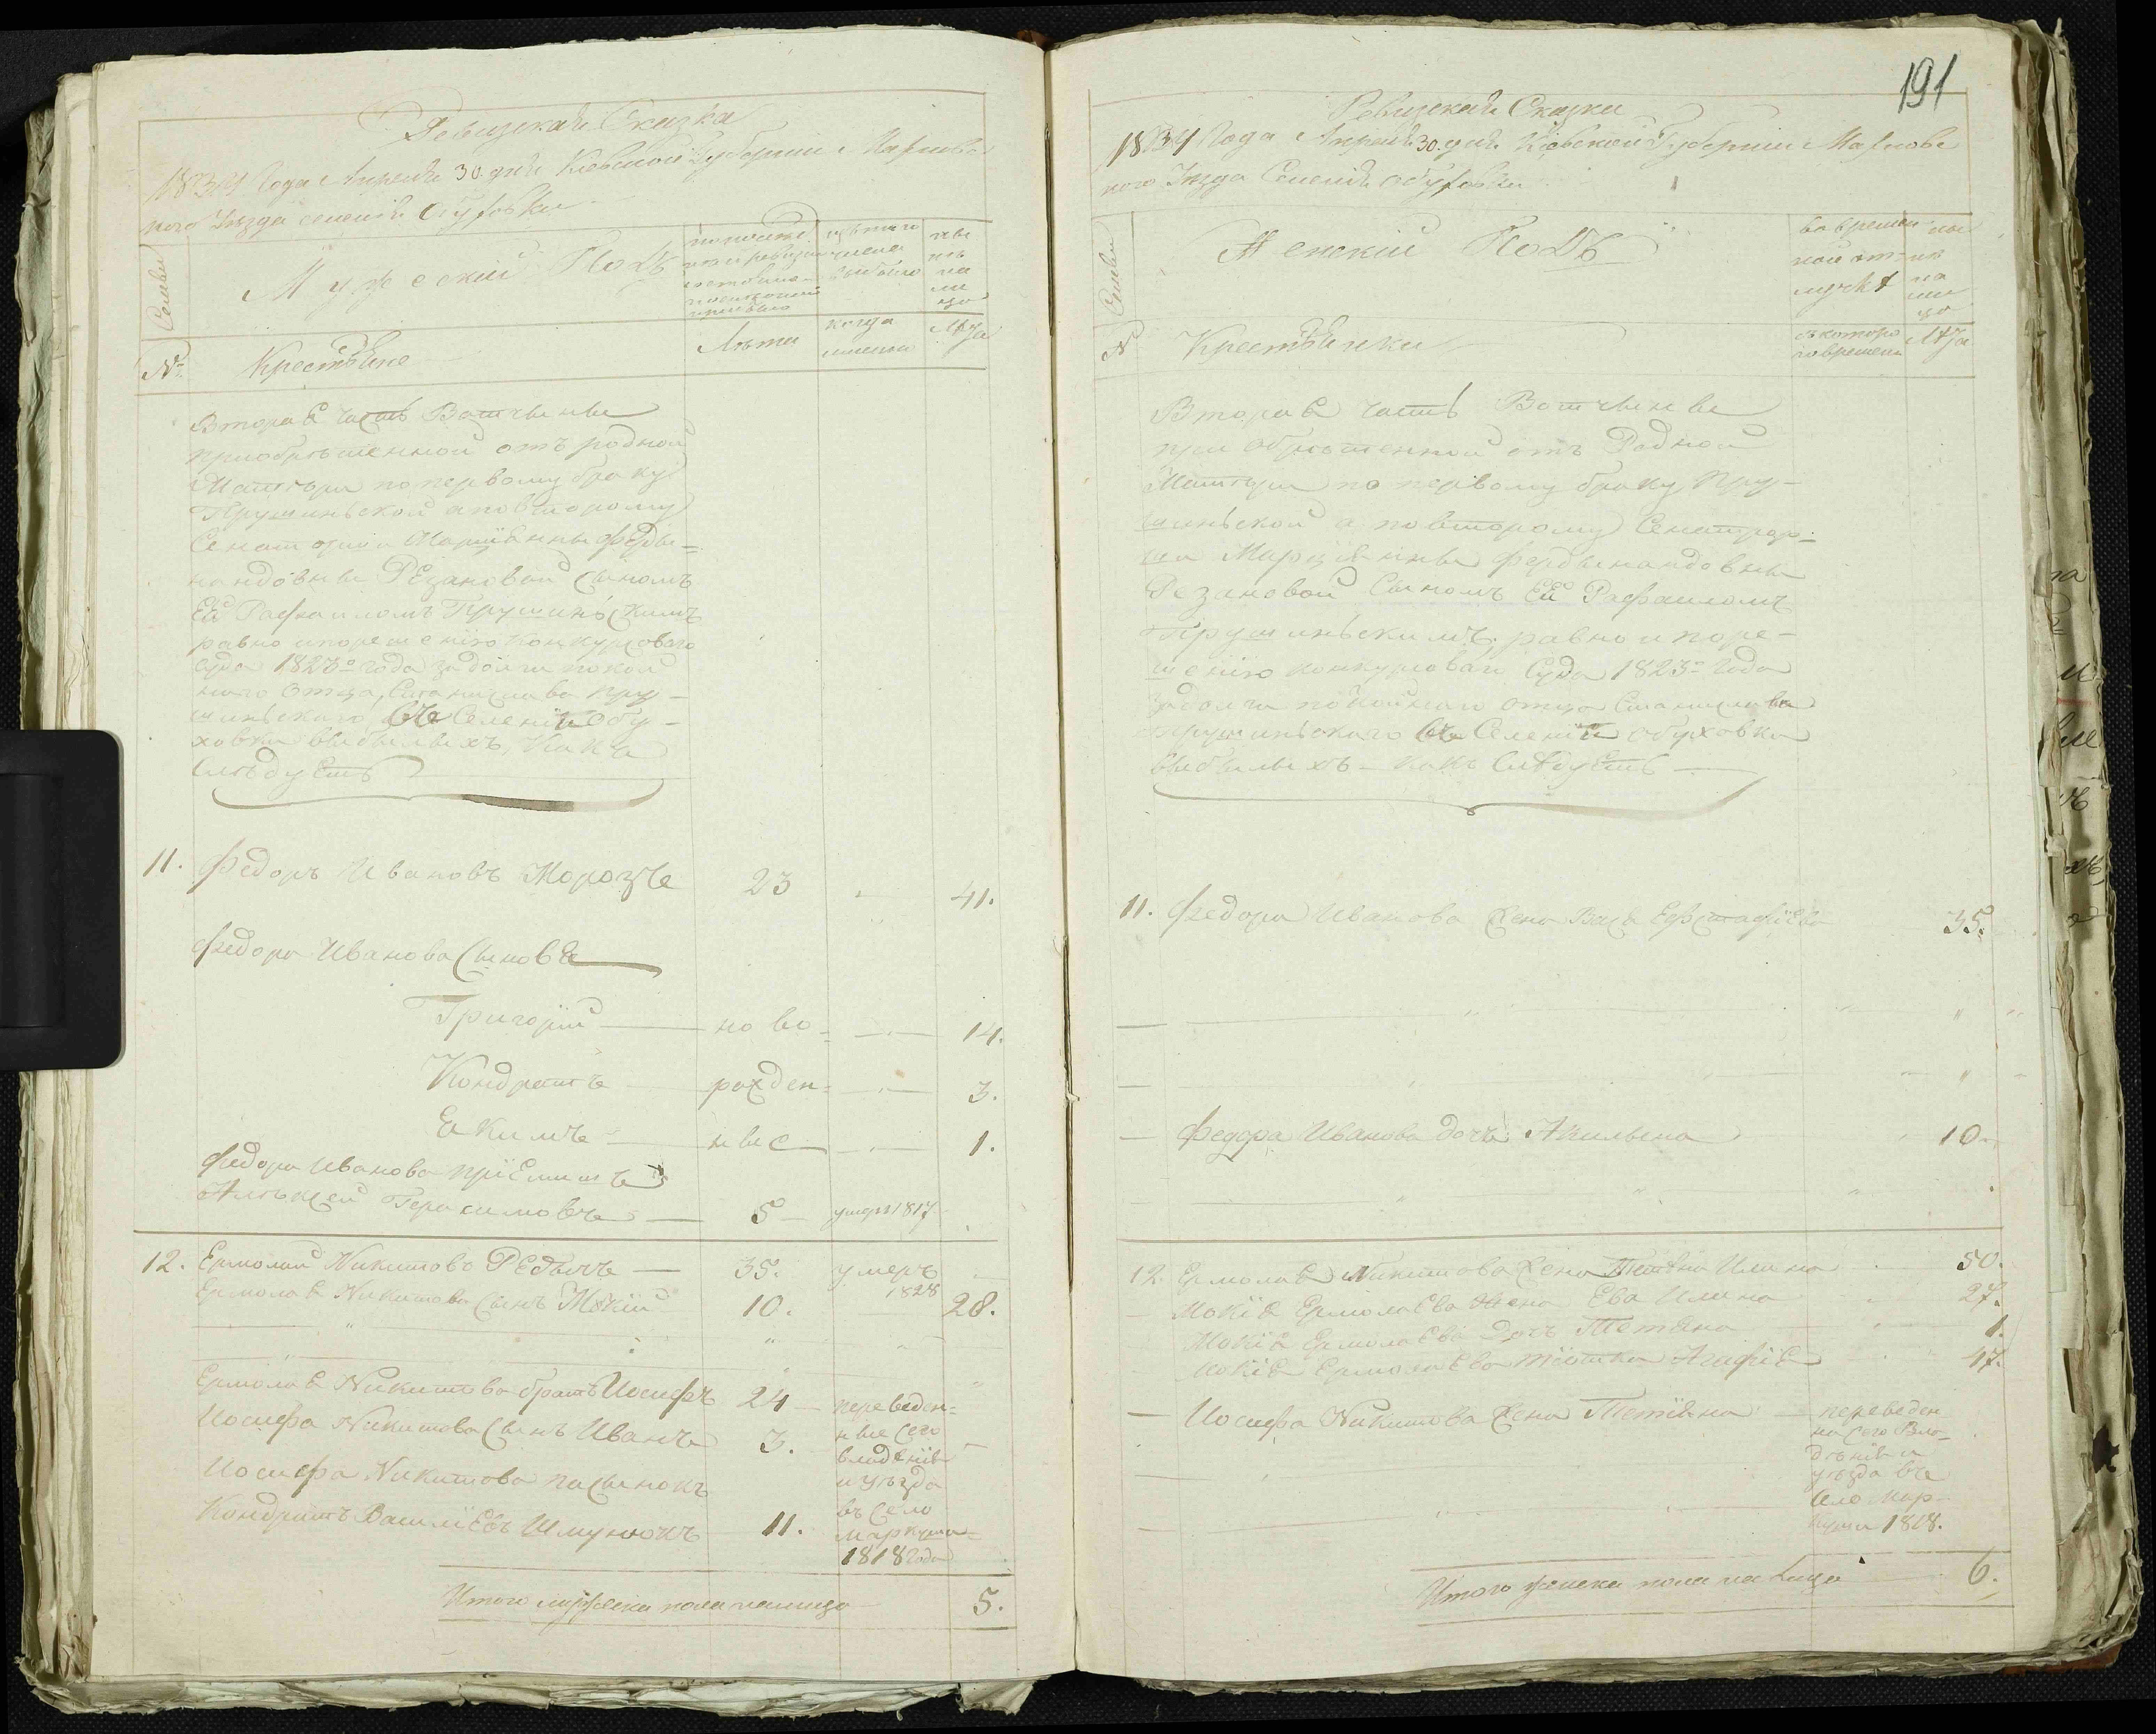 Ревизская Сказка
1834 Года Апреля 30. дня Киевской Губернии Махнов
кого Уезда селения Обуховки
Семьи
Мужеский Полъ
по последней ревизіи состояло и после оной прибыло
изъ того числа выбыло
ныне на лицо
№
Крестьяне
Лѣта
когда именно
Лѣта
Вторая часть Вотчины
приобрѣтенной отъ родной
Матери по первому браку
Прушинской а по второму
Сенаторши Маріянны Ферди=
нандовны Резановой сыномъ
Ей Рафаиломъ Прушинскимъ
равно и по решенію конкурсоваго
суда 1823го года за долги покой
наго отца Станислава Пру-
шинскаго въ Селеніи Обу-
ховки выбылыхъ, какъ
Слѣдуетъ
11. Федоръ Ивановъ Морозъ 23 41.
Федора Иванова Сыновя
Григорій — ново= 14.
Кондратъ — рожден= 3.
Екимъ — ные 1.
Федора Иванова пріемышъ
Алексей Герасимовъ — 5 — умеръ 1817
12. Ермолай Никитовъ Редычъ — 35. умеръ 1828
Ермолая Никитова Сынъ Мокій 10. 28.
Ермолая Никитова братъ Иосифъ 24 — переведен=
Иосифа Никитова Сынъ Иванъ 3. ные сего
владенія
Иосифа Никитова пасынокъ и уѣзда
въ село
Кондратъ Василіевъ 11. Маркуши
1818 года
Итого мужеска пола налицо 5.
191
Ревизская Сказка
1834 Года Апреля 30. дня Кіевской Губерніи Махнове
кого Уезда Селенія Обуховки
Семьи
Женскій Полъ
во временной отлучке
ныне на лицо
№
Крестьянки
съ которого времени
Лѣта
Вторая часть Вотчины
приобрѣтенной отъ Родной
Матери по первому браку Пру-
шинской а по второму Сенатор-
ши Маріянны Фердинандовны
Резановой Сыномъ Ей Рафаиломъ
Прушинскимъ, равно и по ре-
шенію конкурсоваго Суда 1823го Года
за долги покойнаго отца Станислава
Прушинскаго въ Селеніи Обуховки
выбылыхъ — какъ Следуетъ —
11. Федора Иванова Жена Евстафіева 35.
— Федора Иванова дочь Акилина 10.
12. Ермолая Никитова Жена Тетяна Илина 50.
— Мокія Ермолаева Жена Ева Илина 27.
Мокія Ермолаева Дочъ Тетяна 1.
Мокія Ермолаева тіотка Агафія 47.
— Иосифа Никитова Жена Тетіяна — переведен
на сего Вла-
дѣнія и
уѣзда въ
Село Мар-
куши 1818.
Итого женска пола на Лицо 6.